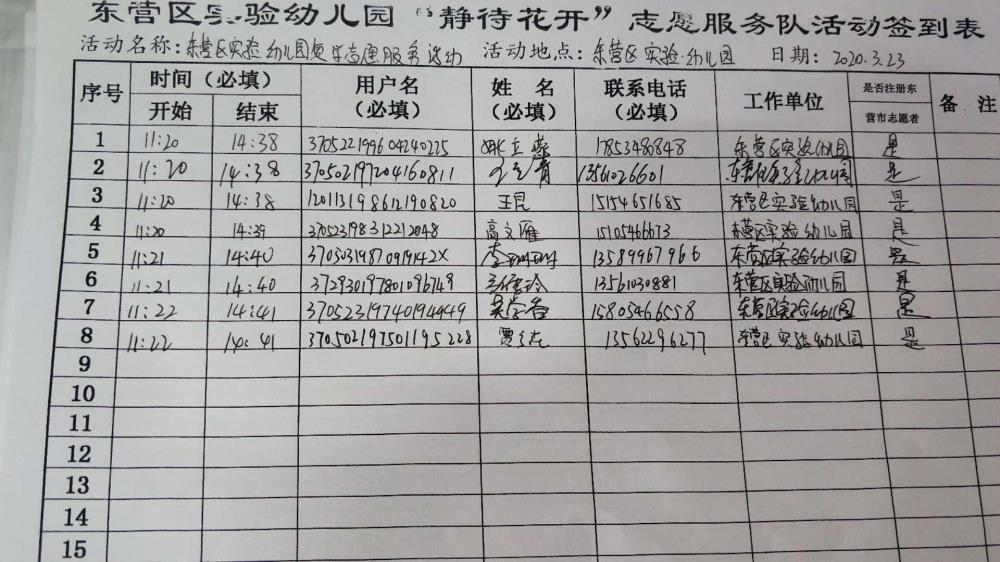 东营区实验幼儿园“静待花开”志愿服务队活动签到表
活动名称：东营区实验幼儿园复学志愿服务活动 活动地点：东营区实验幼儿园 日期：2020.3.23
序号 时间（必填） 用户名（必填） 姓名（必填） 联系电话（必填） 工作单位 是否注册东营市志愿者 备注
开始 结束
1 11:20 14:38 370522199604240225 17853480848 东营区实验幼儿园 是
2 11:20 14:38 370502197204160811 13561026601 东营区实验幼儿园 是
3 11:20 14:38 120113198612190820 王昆 15154651685 东营区实验幼儿园 是
4 11:20 14:39 370523198312212048 高文雁 15105466673 东营区实验幼儿园 是
5 11:21 14:40 37050319870919142X 李 13589967966 东营区实验幼儿园 是
6 11:21 14:40 372930197801096749 13561030881 东营区实验幼儿园 是
7 11:22 14:41 370523197401944949 15805466558 东营区实验幼儿园 是
8 11:22 14:41 370502197501195228 贾 13562296277 东营区实验幼儿园 是
9
10
11
12
13
14
15